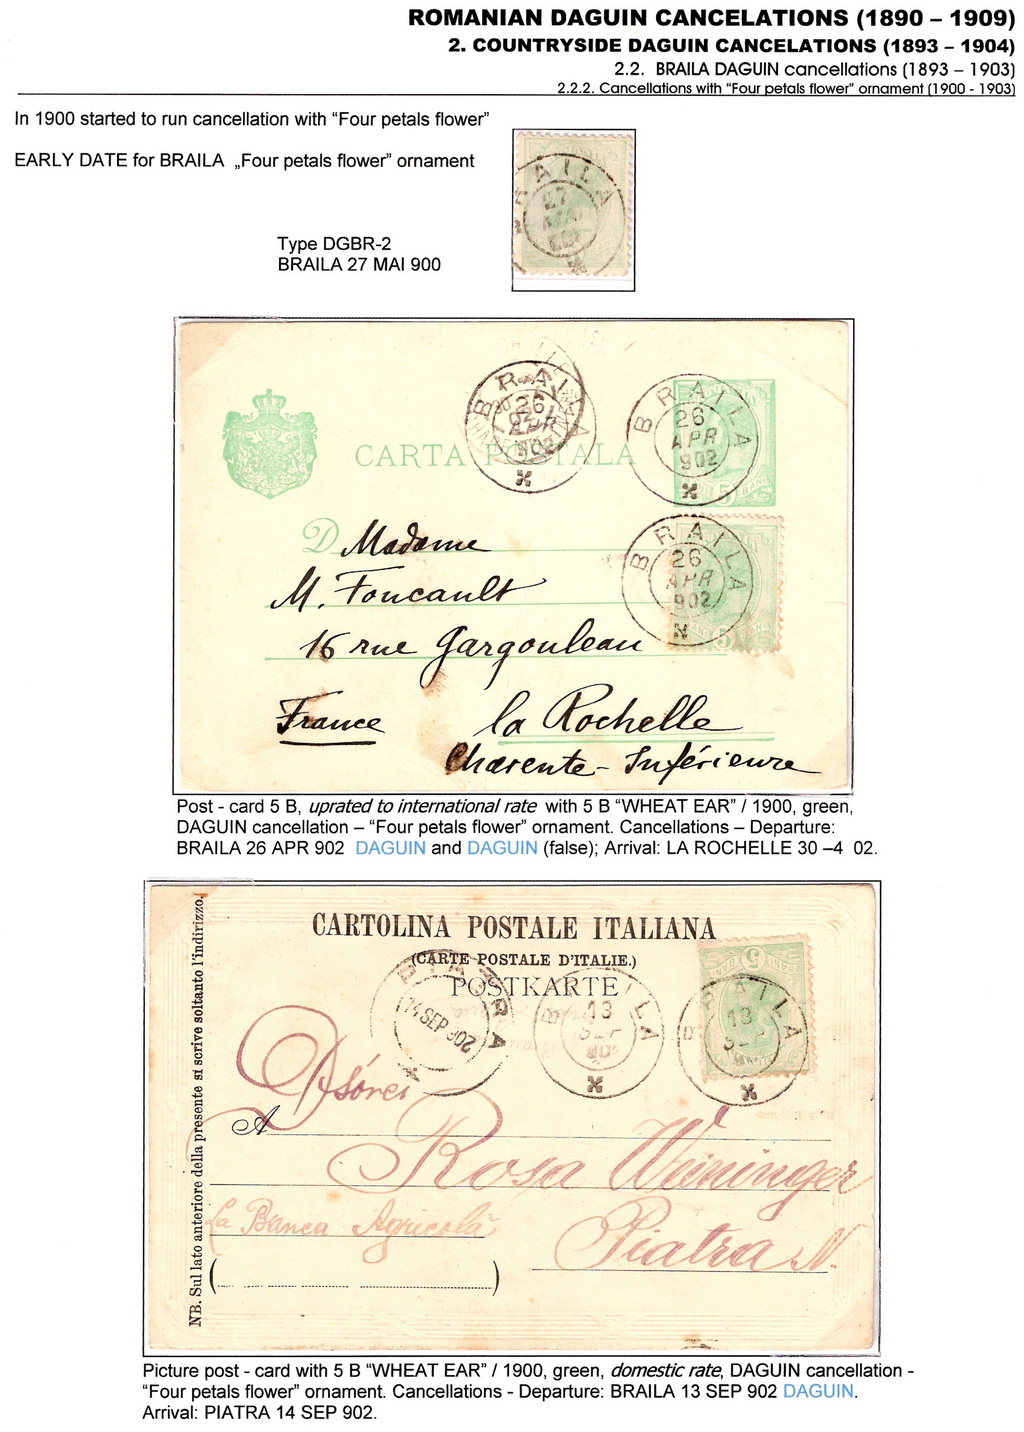 ROMANIAN DAGUIN CANCELATIONS (1890 – 1909)
2. COUNTRYSIDE DAGUIN CANCELATIONS (1893 – 1904)
2.2. BRAILA DAGUIN cancellations (1893 – 1903)
2.2.2. Cancellations with "Four petals flower" ornament (1900 - 1903)
In 1900 started to run cancellation with "Four petals flower"
EARLY DATE for BRAILA „Four petals flower" ornament
RAILA
27
Type DGBR-2
BRAILA 27 MAI 900
BRAILA
26
APR
902
BRAILA
26
APR
902
CARTA POSTALA
5 BANI
D Madame
BRAILA
26
APR
902
5
M. Foucault
16 rue Gargouleau
France la Rochelle
Charente-Inférieure
Post - card 5 B, uprated to international rate with 5 B "WHEAT EAR" / 1900, green,
DAGUIN cancellation – "Four petals flower" ornament. Cancellations – Departure:
BRAILA 26 APR 902 DAGUIN and DAGUIN (false); Arrival: LA ROCHELLE 30 –4 02.
CARTOLINA POSTALE ITALIANA
(CARTE POSTALE D'ITALIE.)
POSTKARTE
PIATRA
14 SEP 902
13
BRAILA
13
SEP
5
BANI
A
Rosa Weininger
La Banca Agricolă
Piatra N.
( )
NB. Sul lato anteriore della presente si scrive soltanto l'indirizzo.
Picture post - card with 5 B "WHEAT EAR" / 1900, green, domestic rate, DAGUIN cancellation -
"Four petals flower" ornament. Cancellations - Departure: BRAILA 13 SEP 902 DAGUIN.
Arrival: PIATRA 14 SEP 902.